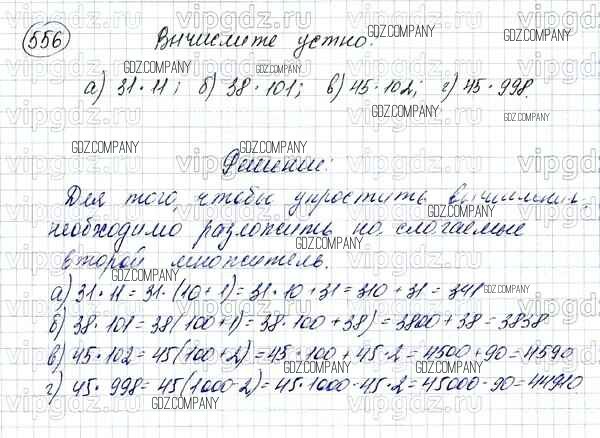 556 Вычислите устно.
а) 31·11; б) 38·101; в) 45·102; г) 45·998.
Решение:
Для того, чтобы упростить вычислния,
необходимо разложить на слагаемые
второй множитель.
а) 31·11 = 31·(10+1) = 31·10+31 = 310+31 = 341
б) 38·101 = 38(100+1) = 38·100+38) = 3800+38 = 3838
в) 45·102 = 45(100+2) = 45·100+45·2 = 4500+90 = 4590
г) 45·998 = 45(1000-2) = 45·1000-45·2 = 45000-90 = 44910.
vipgdz.ru
GDZ.COMPANY